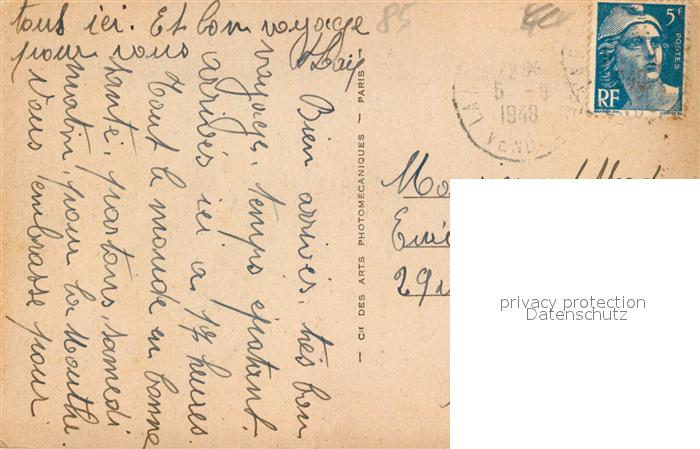 Bien arrivés, très bon
voyage, temps épatant.
arrivés ici à 17 heures.
Tout le monde en bonne
santé, partons, samedi
matin, pour la Mouthe.
Vous embrasse pour
tous ici. Et bon voyage
pour vous
85
5F
POSTES
RF
5 - 9
1948
— Cie DES ARTS PHOTOMÉCANIQUES — PARIS
privacy protection
Datenschutz